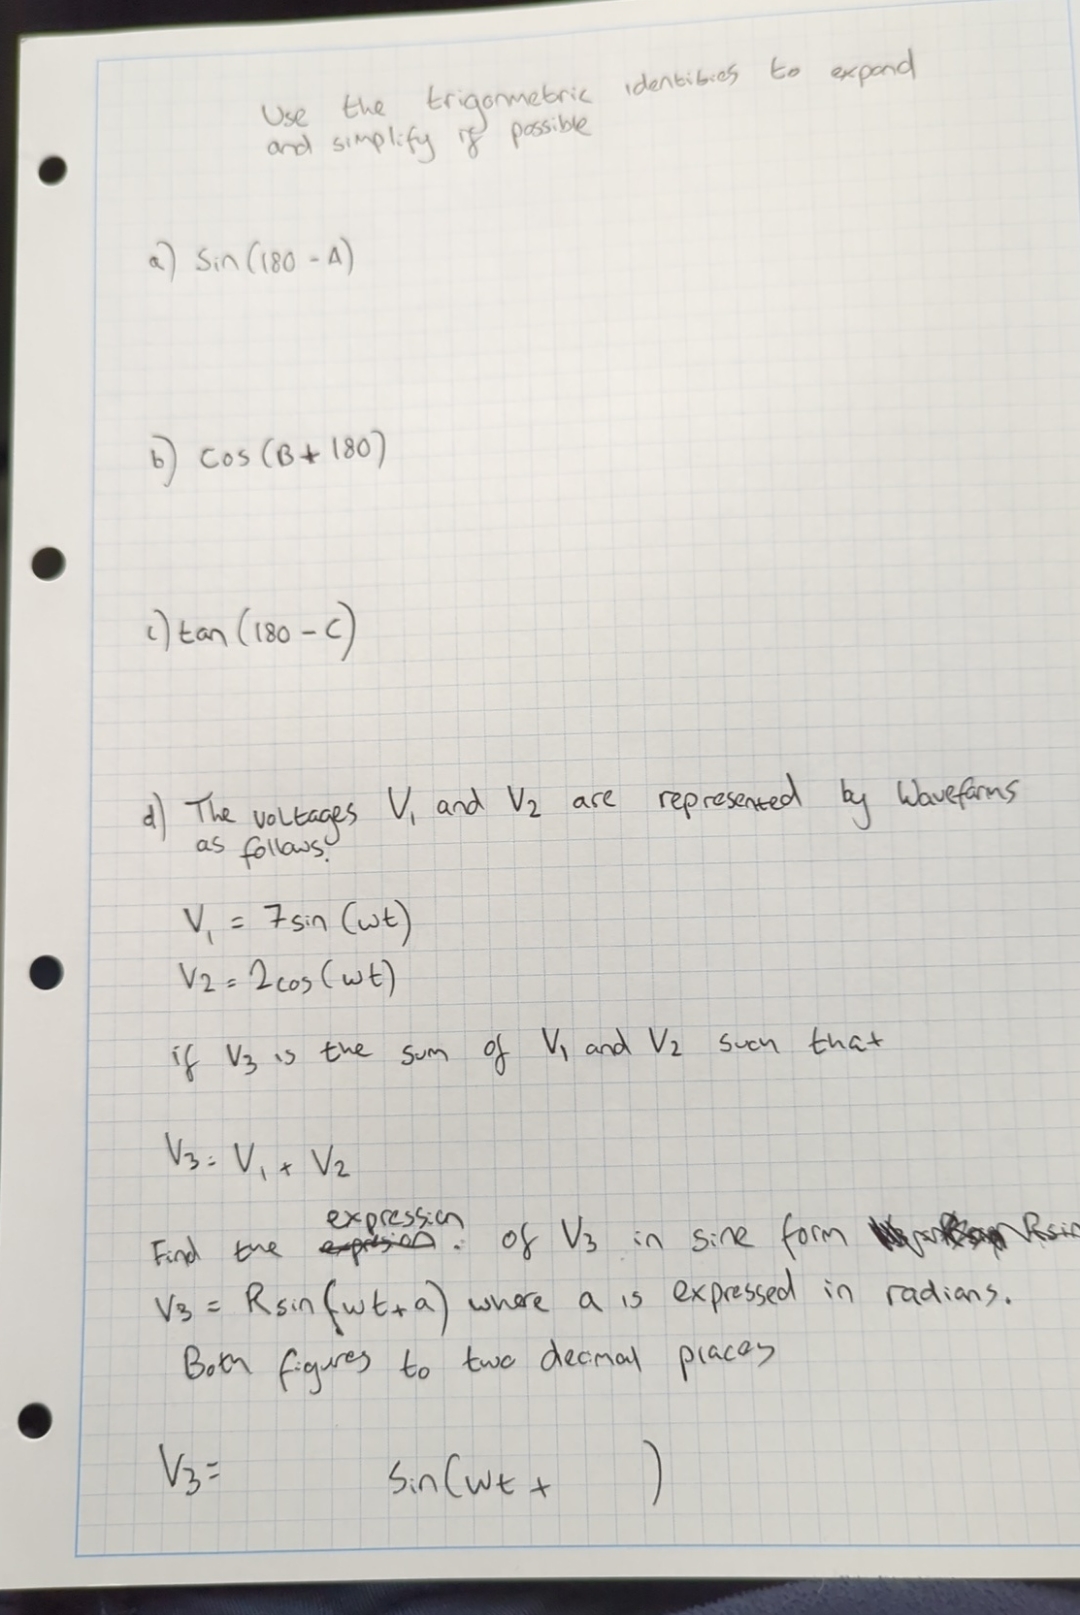 Use the trigonmetric identities to expand
and simplify if possible
a) Sin (180 - A)
b) Cos (B + 180)
c) tan (180 - C)
d) The voltages V₁ and V2 are represented by Waveforms
as follows:
V₁ = 7sin (wt)
V2 = 2cos (wt)
if V3 is the sum of V₁ and V2 such that
V3 = V₁ + V2
expression
Find the of V3 in sine form Rsin
V3 = Rsin (wt + a) where a is expressed in radians.
Both figures to two decimal places
V3 = Sin (wt + )